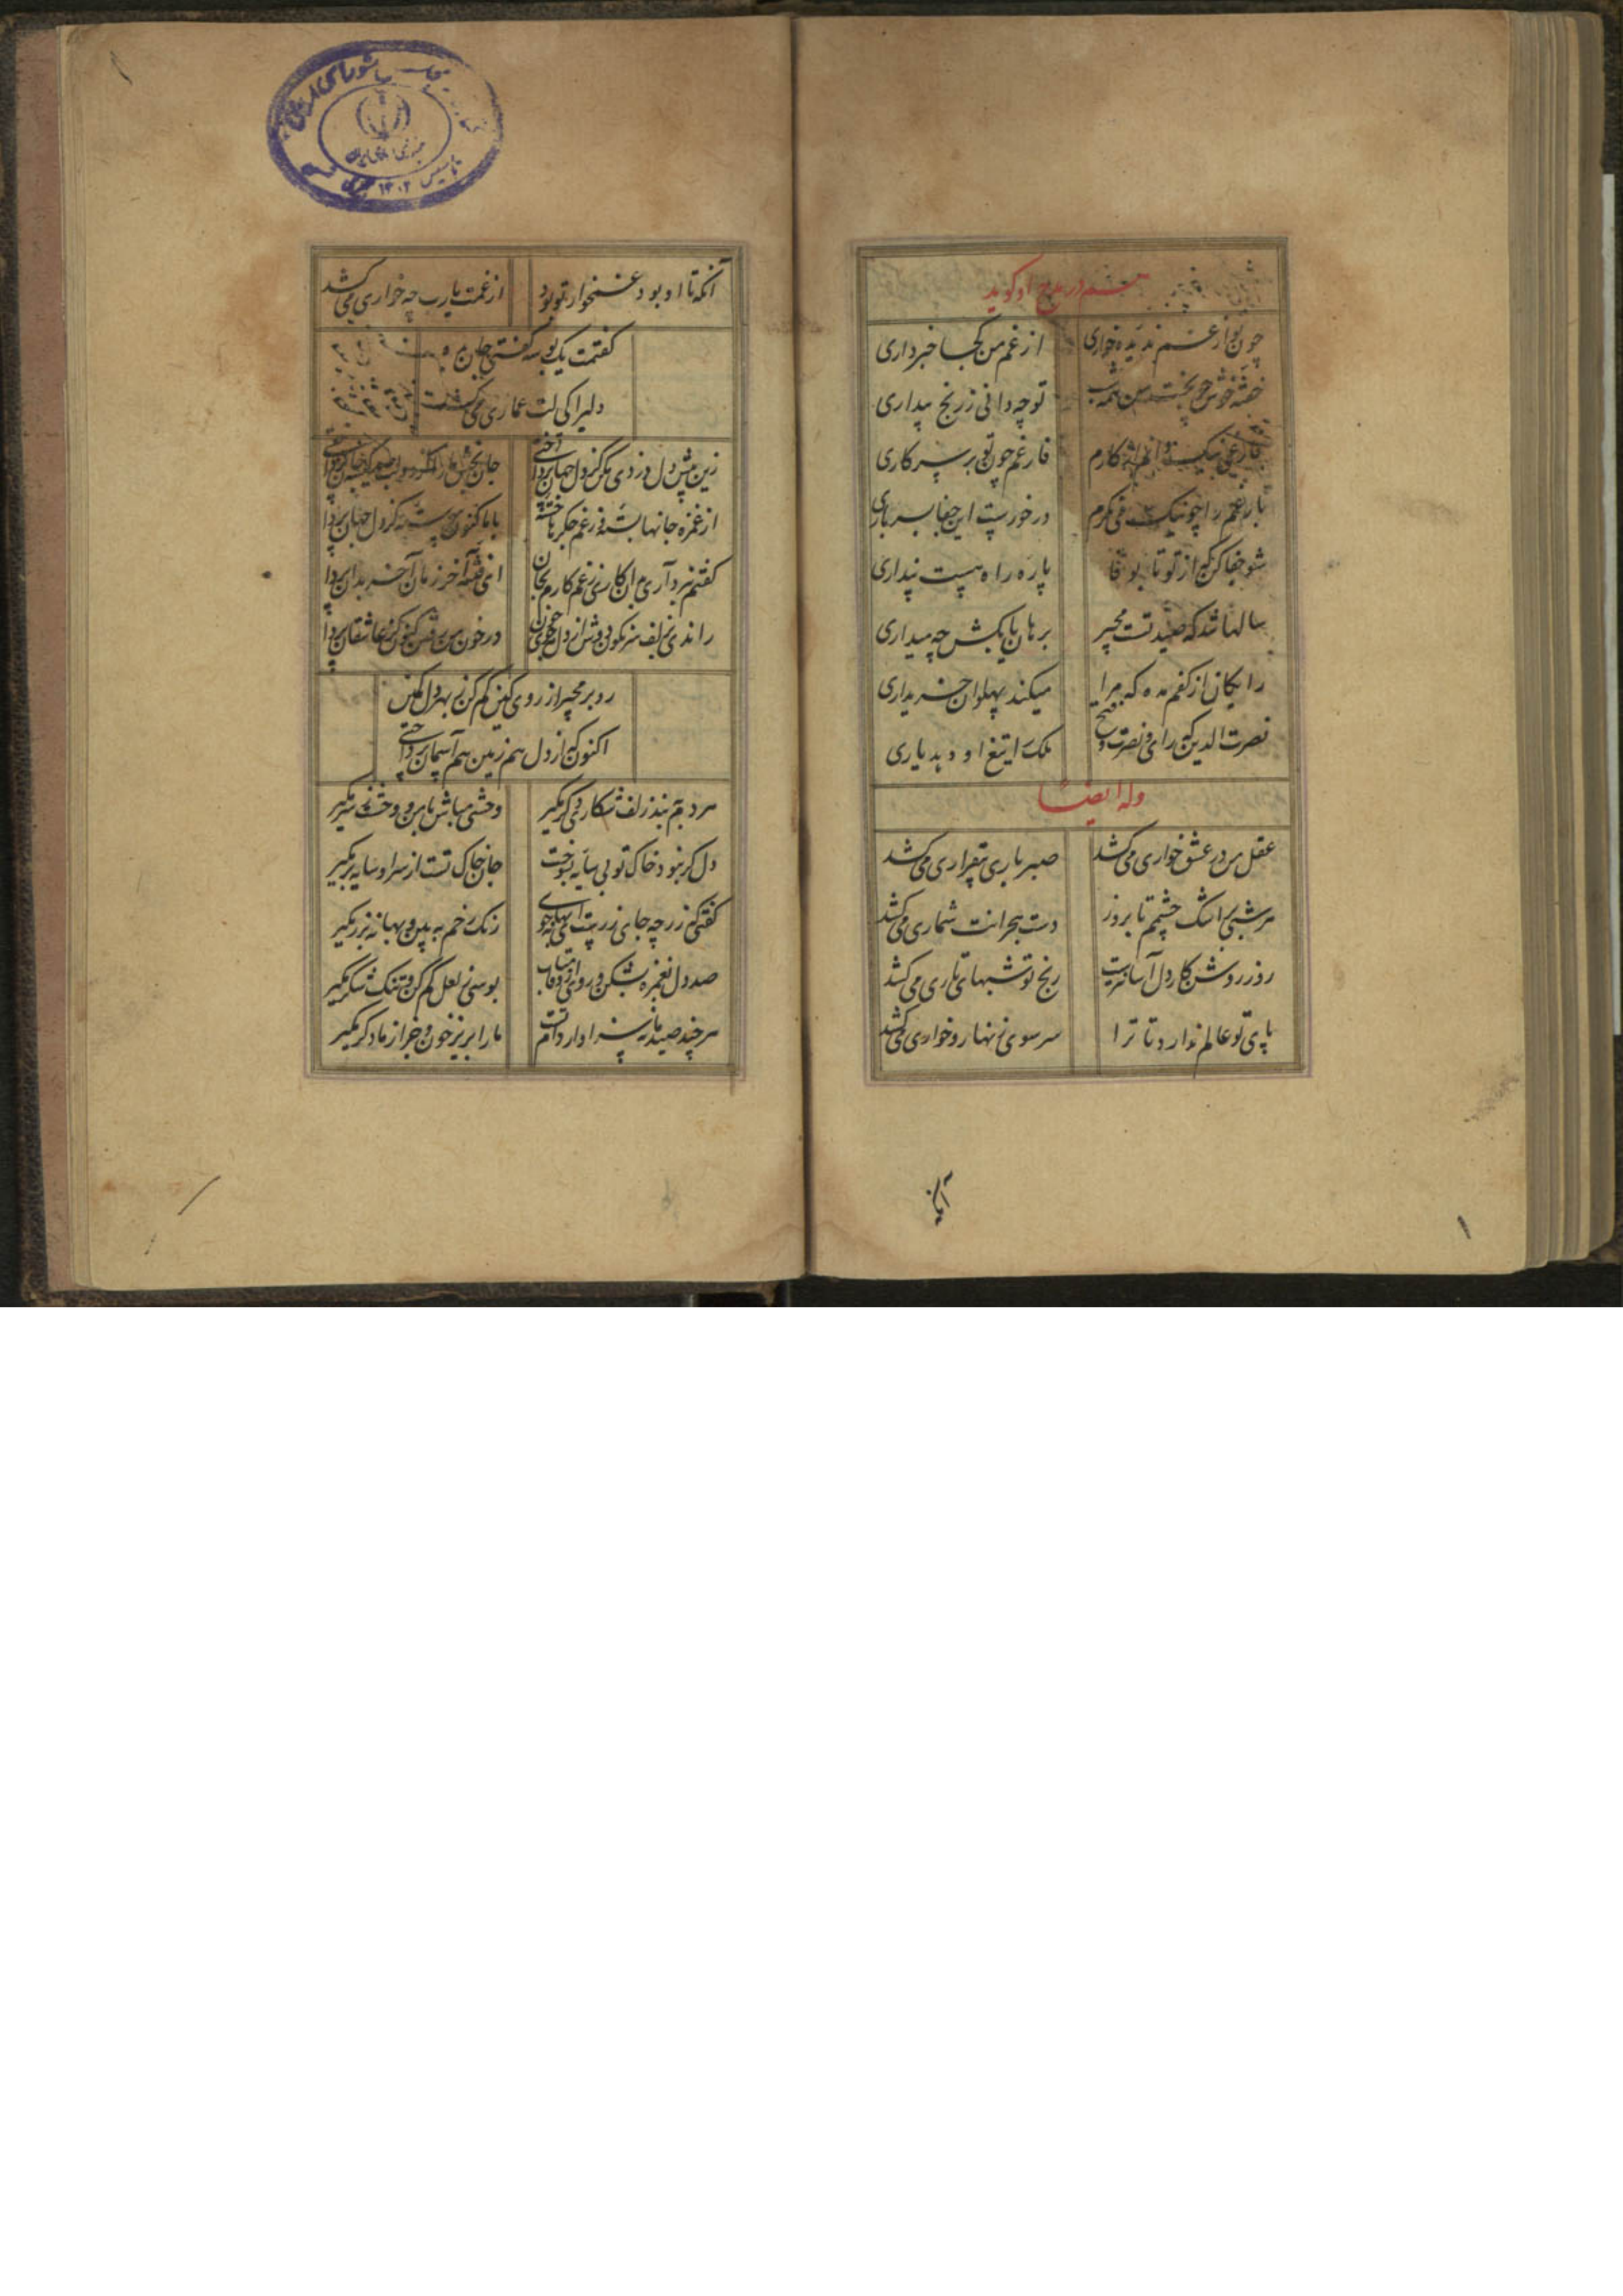 هم در مدح او گوید
چون تو از غم ندیده خواری از غم من کجا خبر داری
خفته خوش چو بخت من همه شب تو چه دانی ز رنج بیداری
فارغی نیک دانم از کارم فارغم چون توی بر سر کاری
بار غم را چو نیک می نکرم در خورست این جفا بسر باری
شو جفا کن که از تو تا بوفا پاره راه هست پنداری
سالها شد که صید تست مجیر برهان یا بکش چه میداری
رایکان از کفم مده که مرا میکند پهلوان خریداری
نصرت الدین که رای و نصرت و فتح ملک را تیغ او دهد یاری
وله ایضا
عقل من در عشق خواری می کشد صبر بار بی قراری می کشد
هر شبی اشک چشمم تا بروز دست هجرانت شماری می کشد
روز روشن کار دل آسانترست رنج تو شبهای تاری می کشد
پای تو عالم ندارد تا ترا سر سوی زنهار و خواری می کشد
آنکه
آنکه تا او بود غمخوار تو بود از غمت یارب چه خواری می کشد
کفتمت یک بوسه کفتی جان بده
دلبرا کی لت عماری می کشد
زین پیش دل دزدی مکر کز دل جهان پرداختی
از غمزه جانها بسته وز غم جکرها خسته با ما کنون پیوسته کز دل جهان پرداختی
کفتم سر در آری بدان کار نی ز غم کارم بجان ای فتنه آخر زمان آخر بدان پرداختی
راندی ز زلف سرنکون دوش از دل من جوی خون در خون من مشو کنون کز عاشقان پرداختی
رو بر مجیر از روی کین کم کن بهر دل کمین
اکنون که از دل هم زمین هم آسمان پرداختی
هر دم به بند زلف شکار دکر مکیر وحشی مباش با من و وحشت ز سر مکیر
دل کر نبود خاک تو بی سایه بسوخت جان خاک تست از سر او سایه بر مکیر
کفتی که زر چه جای زرست رنک رخم ببین و بهانه بزر مکیر
صد دل بغمزه بشکن و روی از متاب بوسی ز لعل کم کن و تنک شکر مکیر
هر چند صید مانه سزاوار دام تست ما را بریز خون و جز از ما دکر مکیر
شورای
تاسیس ۱۳۰۲